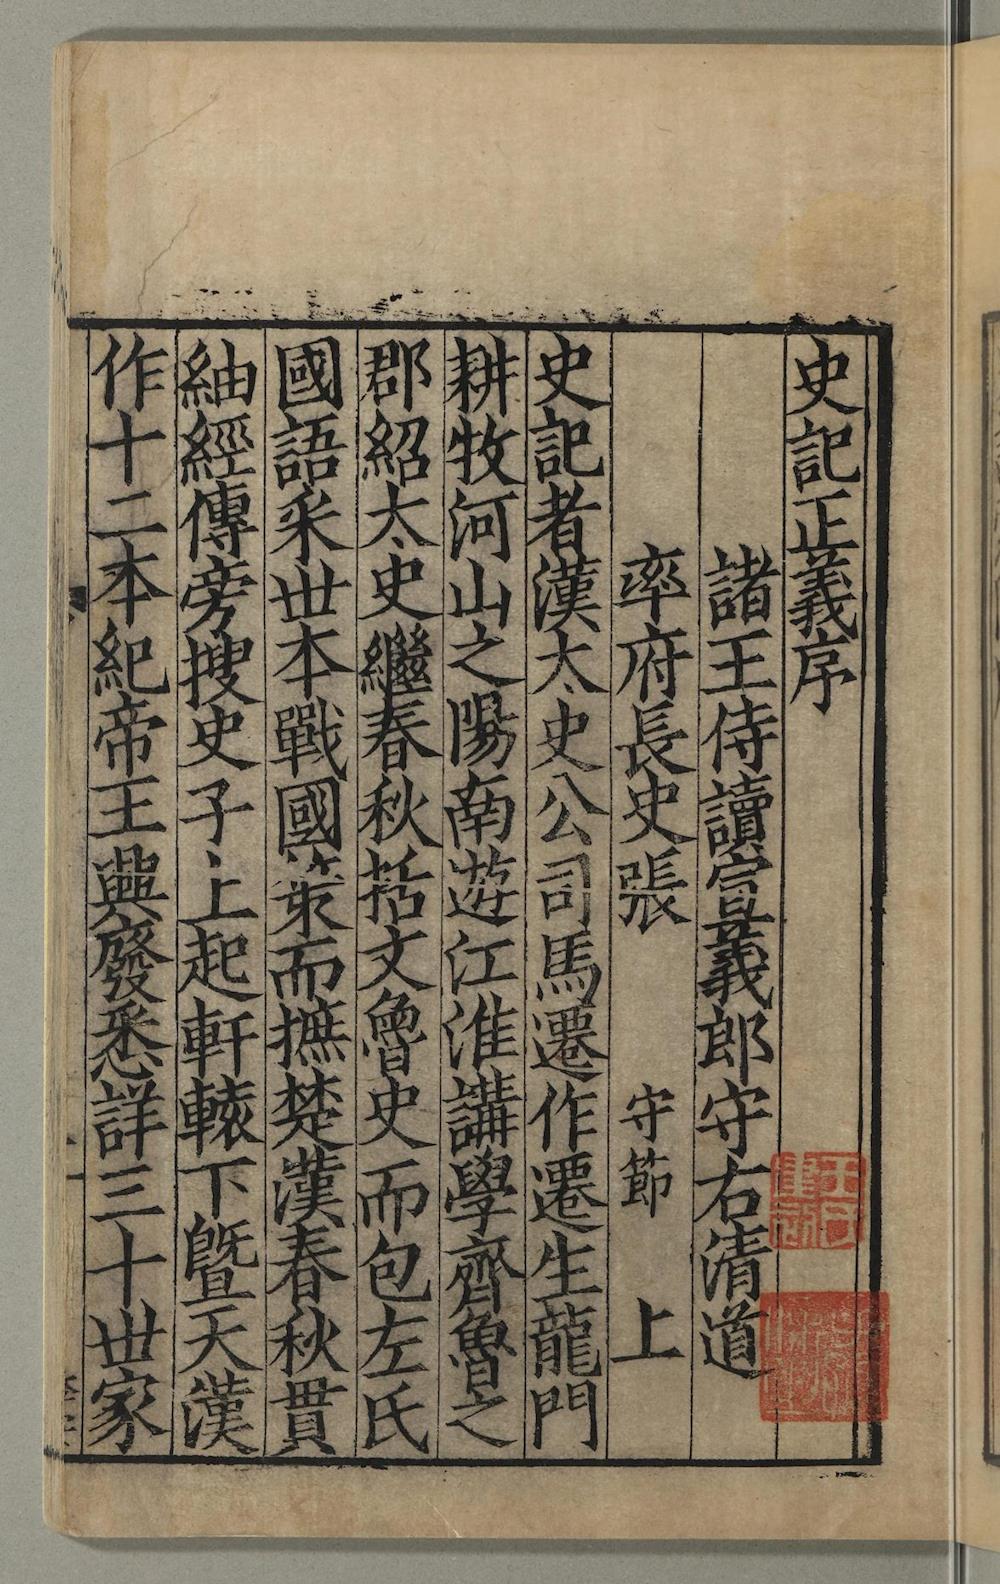 史記正義序
諸王侍讀宣義郎守右清道
率府長史張　守節　上
史記者漢太史公司馬遷作遷生龍門
耕牧河山之陽南遊江淮講學齊魯之
郡紹太史繼春秋括文魯史而包左氏
國語采世本戰國策而摭楚漢春秋貫
紬經傳旁搜史子上起軒轅下曁天漢
作十二本紀帝王興廢悉詳三十世家